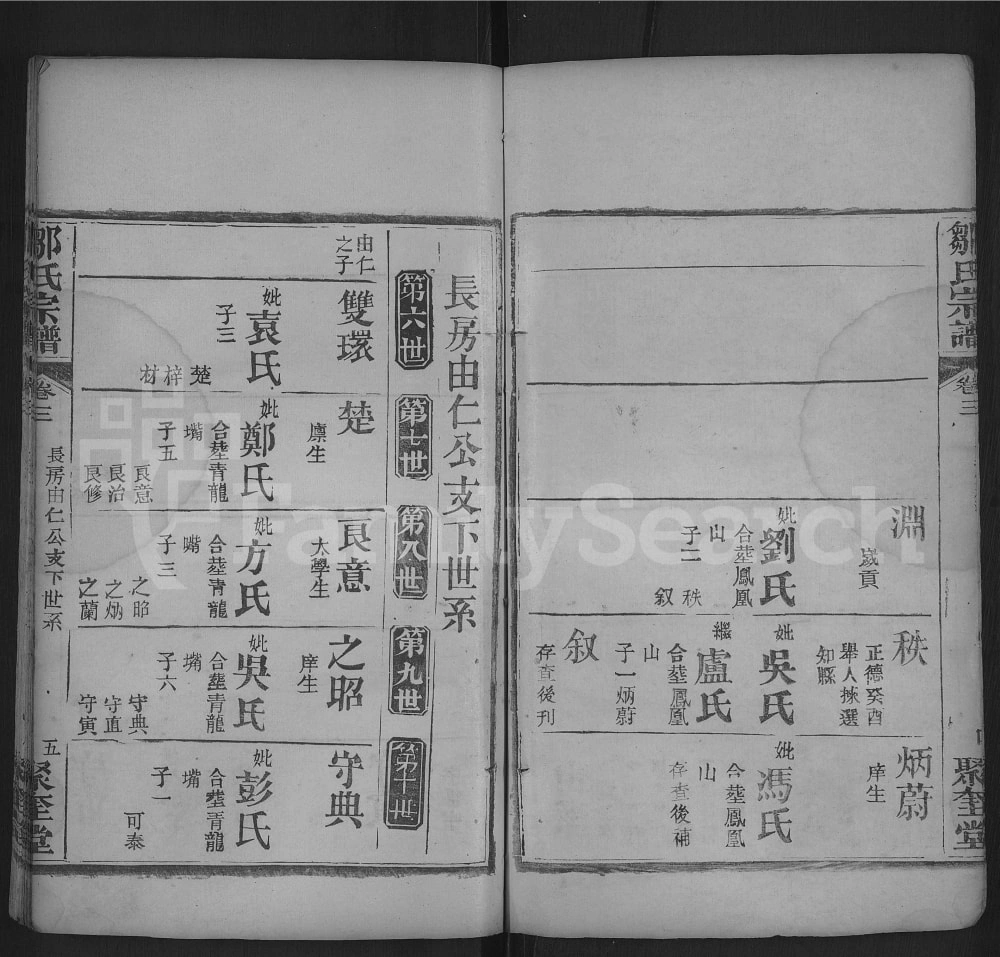 鄒氏宗譜
卷三
聚奎堂
淵
歲貢
妣劉氏
合塟鳳凰
山
子二
秩
叙
秩
正德癸酉
舉人揀選
知縣
妣吳氏
繼盧氏
合塟鳳凰
山
子一炳蔚
叙
存查後刊
炳蔚
庠生
妣馮氏
合塟鳳凰
山
存查後補
長房由仁公支下世系
第六世
第七世
第八世
第九世
第十世
由仁
之子
雙環
妣袁氏
子三
楚
梓
材
楚
廪生
妣鄭氏
合塟青龍
嘴
子五
良意
良治
良修
良意
太學生
妣方氏
合塟青龍
嘴
子三
之昭
之炳
之蘭
之昭
庠生
妣吳氏
合塟青龍
嘴
子六
守典
守直
守寅
守典
妣彭氏
合塟青龍
嘴
子一
可泰
鄒氏宗譜
卷三
長房由仁公支下世系
五
聚奎堂
FamilySearch